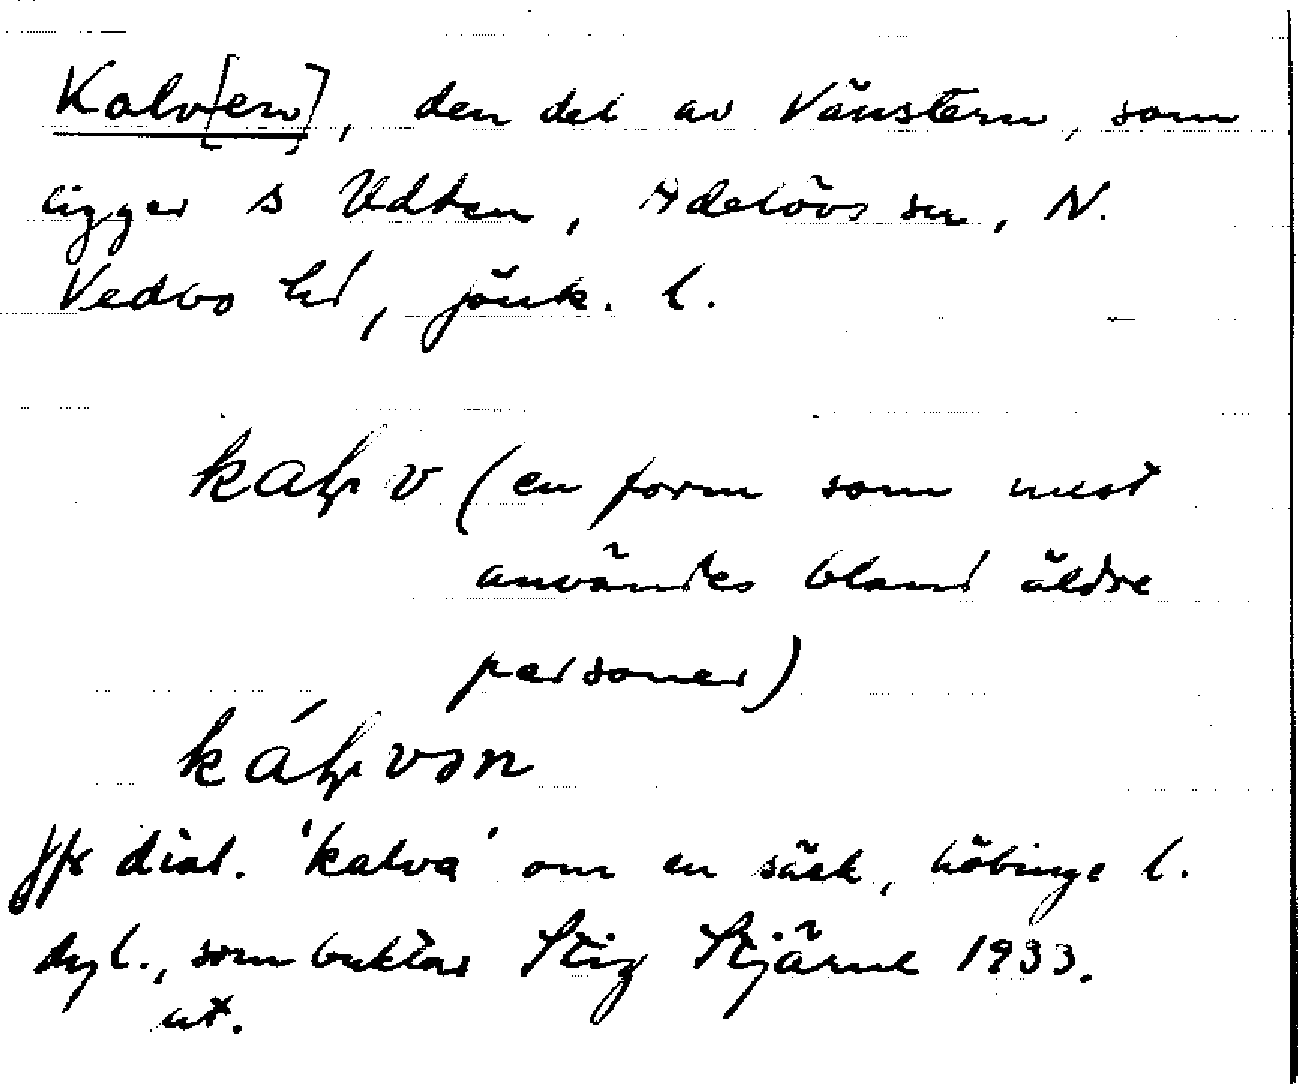 Kalv[en], den del av Vänstern, som
ligger s Udden, Adelövs sn, N.
Vedbo hd, Jönk. l.
kaƚv (en form som mest
användes bland äldre
personer)
káƚvən
Jfr dial. 'kalva' om en säck, höbinge l.
dyl., som buktar Stig Stjärne 1933.
ut.